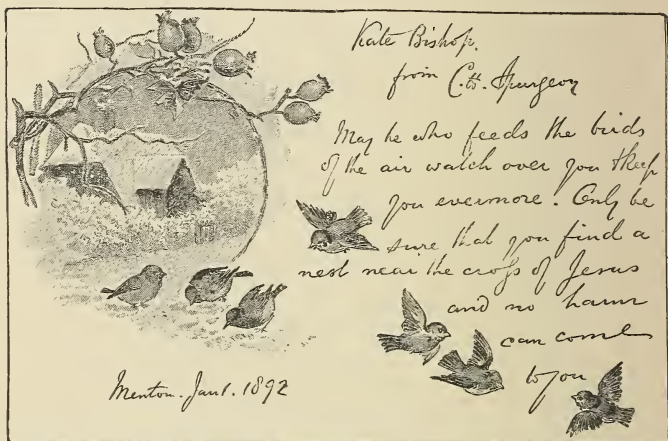 Kate Bishop.
from C. H. Spurgeon
May he who feeds the birds
of the air watch over you & keep
you evermore. Only be
sure that you find a
nest near the cross of Jesus
and no harm
can come
to you
Menton. Jan 1. 1892